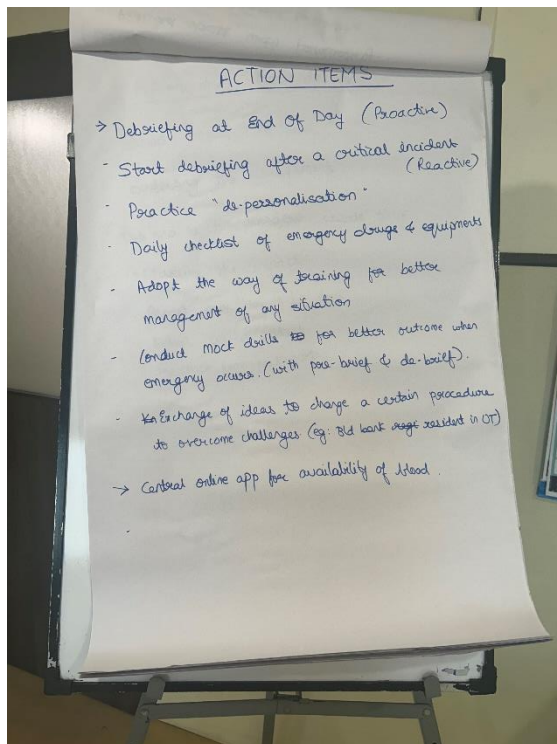 ACTION ITEMS
→ Debriefing at End Of Day (Proactive)
- Start debriefing after a critical incident
(Reactive)
- Practice "de-personalisation"
- Daily checklist of emergency drugs & equipments
- Adopt the way of training for better
management of any situation
- Conduct mock drills for better outcome when
emergency occurs. (with pre-brief & de-brief).
- Exchange of ideas to change a certain procedure
to overcome challenges (eg: Bld bank resident in OT)
→ Central online app for availability of blood.